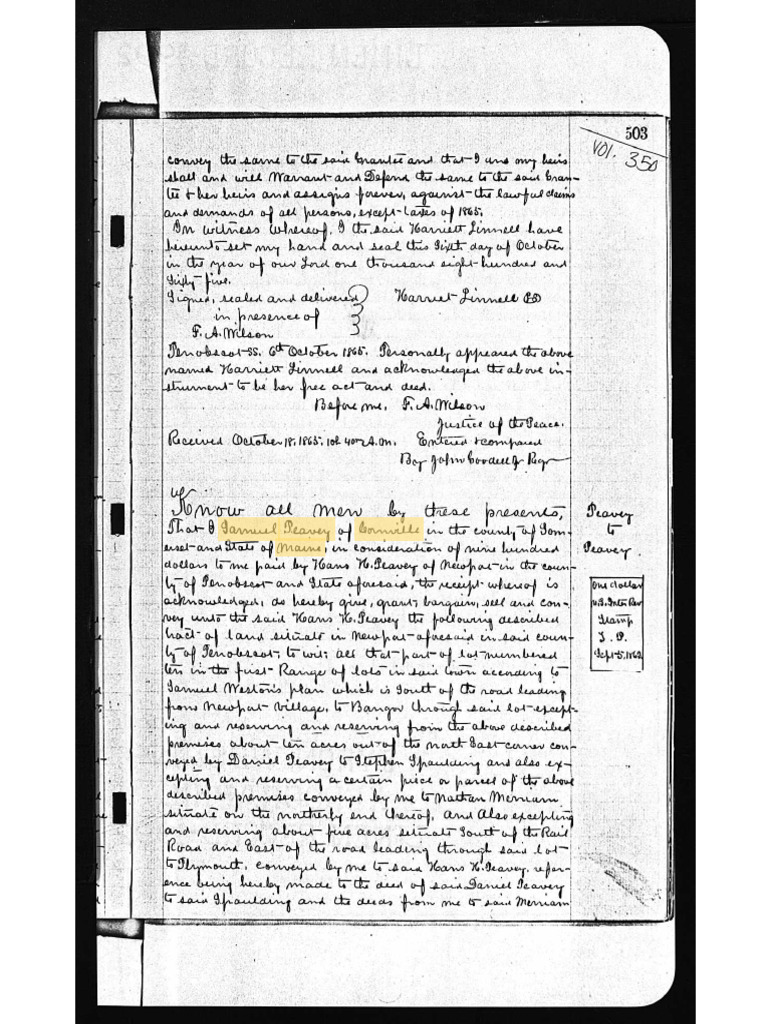 503
Vol. 350
convey the same to the said Grantee and that I and my heirs
shall and will Warrant and Defend the same to the said Gran-
tee & her heirs and assigns forever, against the lawful claims
and demands of all persons, except taxes of 1865.
In witness whereof, I the said Harriett Linnell have
hereunto set my hand and seal this Sixth day of October
in the year of our Lord one thousand eight hundred and
Sixty five.
Signed, sealed and delivered Harriet Linnell
in presence of
F. A. Wilson
Penobscot SS. 6th October 1865. Personally appeared the above
named Harriett Linnell and acknowledged the above in-
strument to be her free act and deed.
Before me, F. A. Wilson
Justice of the Peace.
Received October 18, 1865, 10h 40m A.M. Entered & compared
By John Goodell Jr Regr
Know all men by these presents,
That I Samuel Peavey of Cornville in the county of Som-
erset and State of Maine, in consideration of nine hundred
dollars to me paid by Hans H. Peavey of Newport in the coun-
ty of Penobscot and State aforesaid, the receipt whereof is
acknowledged, do hereby give, grant, bargain, sell and con-
vey unto the said Hans H. Peavey the following described
tract of land situate in Newport aforesaid in said coun-
ty of Penobscot, to wit; all that part of lot numbered
ten in the first Range of lots in said town according to
Samuel Weston's plan which is South of the road leading
from Newport village, to Bangor through said lot except-
ing and reserving and reserving from the above described
premises about ten acres out of the north East corner con-
veyed by Daniel Peavey to Stephen Spaulding and also ex-
cepting and reserving a certain piece or parcel of the above
described premises conveyed by me to Nathan Merriam
situate on the northerly end thereof, and Also excepting
and reserving about five acres situate South of the Rail
Road and East of the road leading through said lot
to Plymouth, conveyed by me to said Hans H. Peavey, refer-
ence being hereby made to the deed of said Daniel Peavey
to said Spaulding and the deeds from me to said Merriam
Peavey
to
Peavey.
One dollar
U.S. Inter Rev
Stamp
S. P.
Sept. 5, 1862